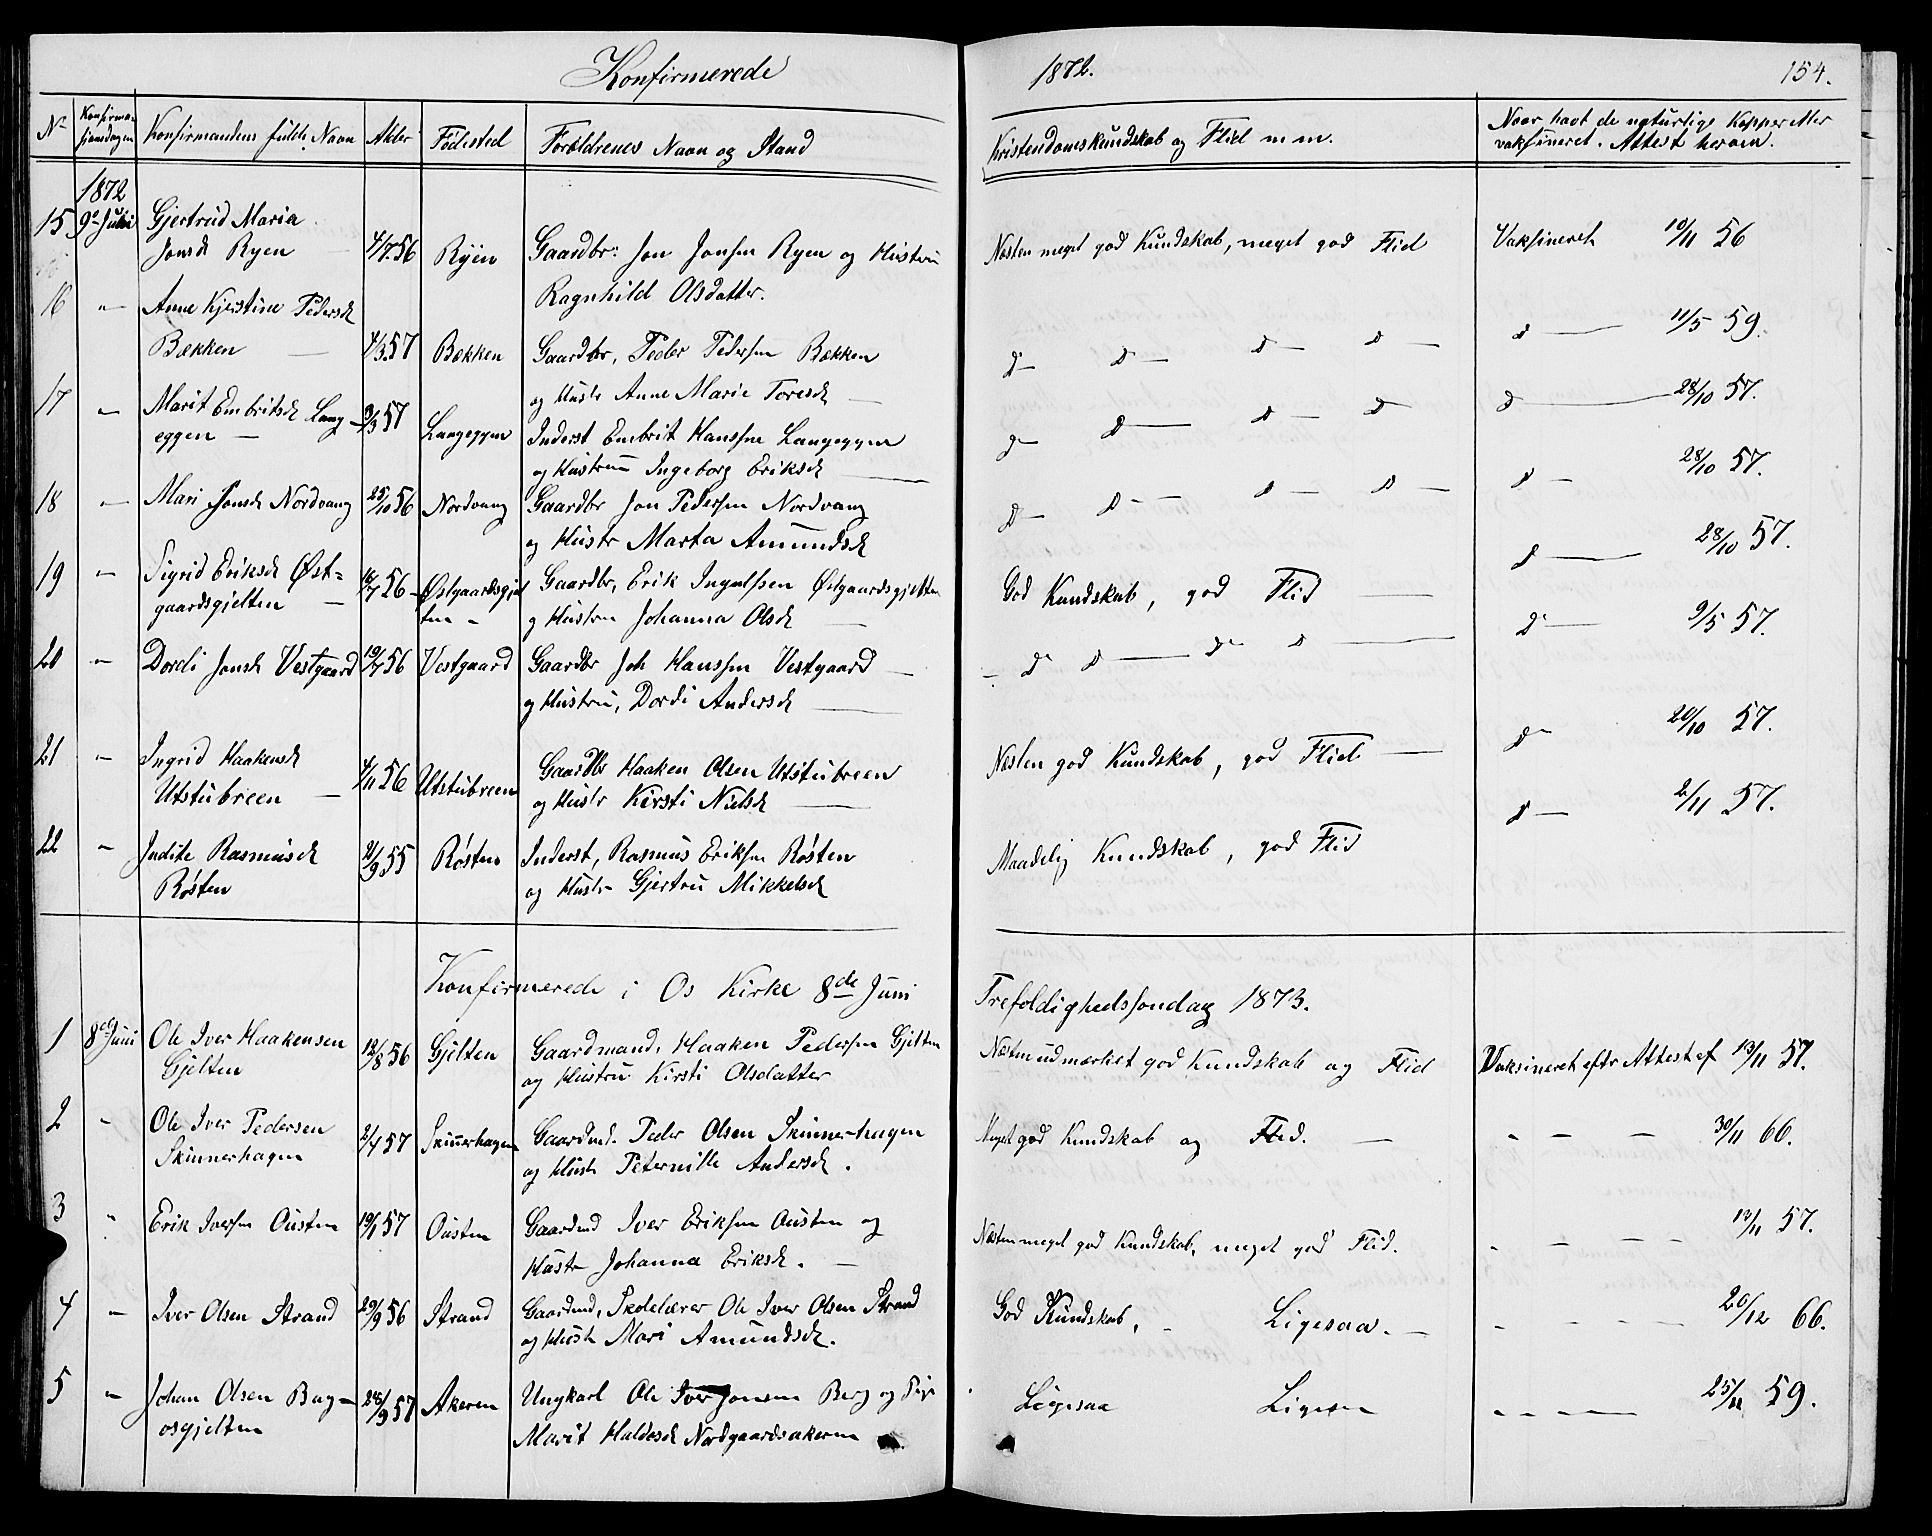 Konfirmerede 1872. 154.
No Konfirmasjonsdagen Konfirmandens fulde Navn Alder Fødested Forældrenes Navn og Stand Kristendomskundskab og Flid m m. Naar havt de naturlige Kopper eller
vaksineret. Attest herom.
1872
15 9de Juni Gjertrud Maria
Jonsd Ryen 4/7 56 Ryen Gaardbr: Jon Jonsen Ryen og Hustru Næsten meget god Kundskab, meget god Flid Vaksineret 10/11 56
Ragnhild Olsdatter.
16 " Anne Kjerstine Pedersd
Bækken 4/3 57 Bækken Gaardbr, Peder Pedersen Bækken d d d d d 11/5 59.
og Hustr Anne Marie Toresd
17 " Marit Embritsd Lang-
eggen 9/3 57 Langeggen Inderst Embrit Hanssen Langeggen d d d d d 28/10 57.
og Hustru Ingeborg Eriksd
18 " Mari Jonsd Nordvang 25/10 56 Nordvang Gaardbr Jon Pedersen Nordvang d d d d d 28/10 57.
og Hustr Marta Amundsd
19 " Sigrid Eriksd Øst-
gaardsgjelten 16/7 56 Østgaardsgjel
ten Gaardbr, Erik Ingulfsen Østgaardsgjelten God Kundskab, god Flid d 28/10 57.
og Hustru Johanna Olsd
20 " Dordi Jonsd Vestgaard 19/7 56 Vestgaard Gaardbr Joh Hanssen Vestgaard d d d d d 9/5 57.
og Hustru, Dordi Andersd
21 " Ingrid Haakensd
Utstubreen 4/11 56 Utstubreen Gaardbr Haaken Olsen Utstubreen Næsten god Kundskab, god Flid d 20/10 57.
og Hustr Kirsti Nielsd
22 " Judite Rasmusd
Røsten 21/9 55 Røsten Inderst, Rasmus Eriksen Røsten Maadelig Kundskab, god Flid d 2/11 57.
og Hustr Gjertru Mikkelsd
Konfirmerede i Os Kirke 8de Juni Trefoldighedssondag 1873.
1 8de Juni Ole Iver Haakensen
Gjelten 12/8 56 Gjelten Gaardmand, Haaken Pedersen Gjelten Næsten udmærket god Kundskab og Flid Vaksineret eftr Attest af 13/11 57.
og Hustru Kirsti Olsdatter
2 " Ole Iver Pedersen
Skinnerhagen 2/4 57 Skinnerhagen Gaardmd. Peder Olsen Skinnerhagen Meget god Kundskab og Flid. " 30/11 66.
og Hustr Peternille Andersd.
3 " Erik Iversen Ousten 19/1 57 Ousten Gaardmd Iver Eriksen Ousten og Næsten meget god Kundskab, meget god Flid. " 12/11 57.
Hustr Johanna Eriksd.
4 " Iver Olsen Strand 29/9 56 Strand Gaardmd, Skolelærer Ole Iver Olsen Strand God Kundskab, Ligesaa. " 20/12 66.
og Hustr Mari Amundsd.
5 " Johan Olsen Bag-
osgjelten 28/9 57 Akeren Ungkarl Ole Iver Jonsen Berg og Pige Ligesaa Ligesaa " 25/11 59.
Marit Haldosd Nordgaardsakeren